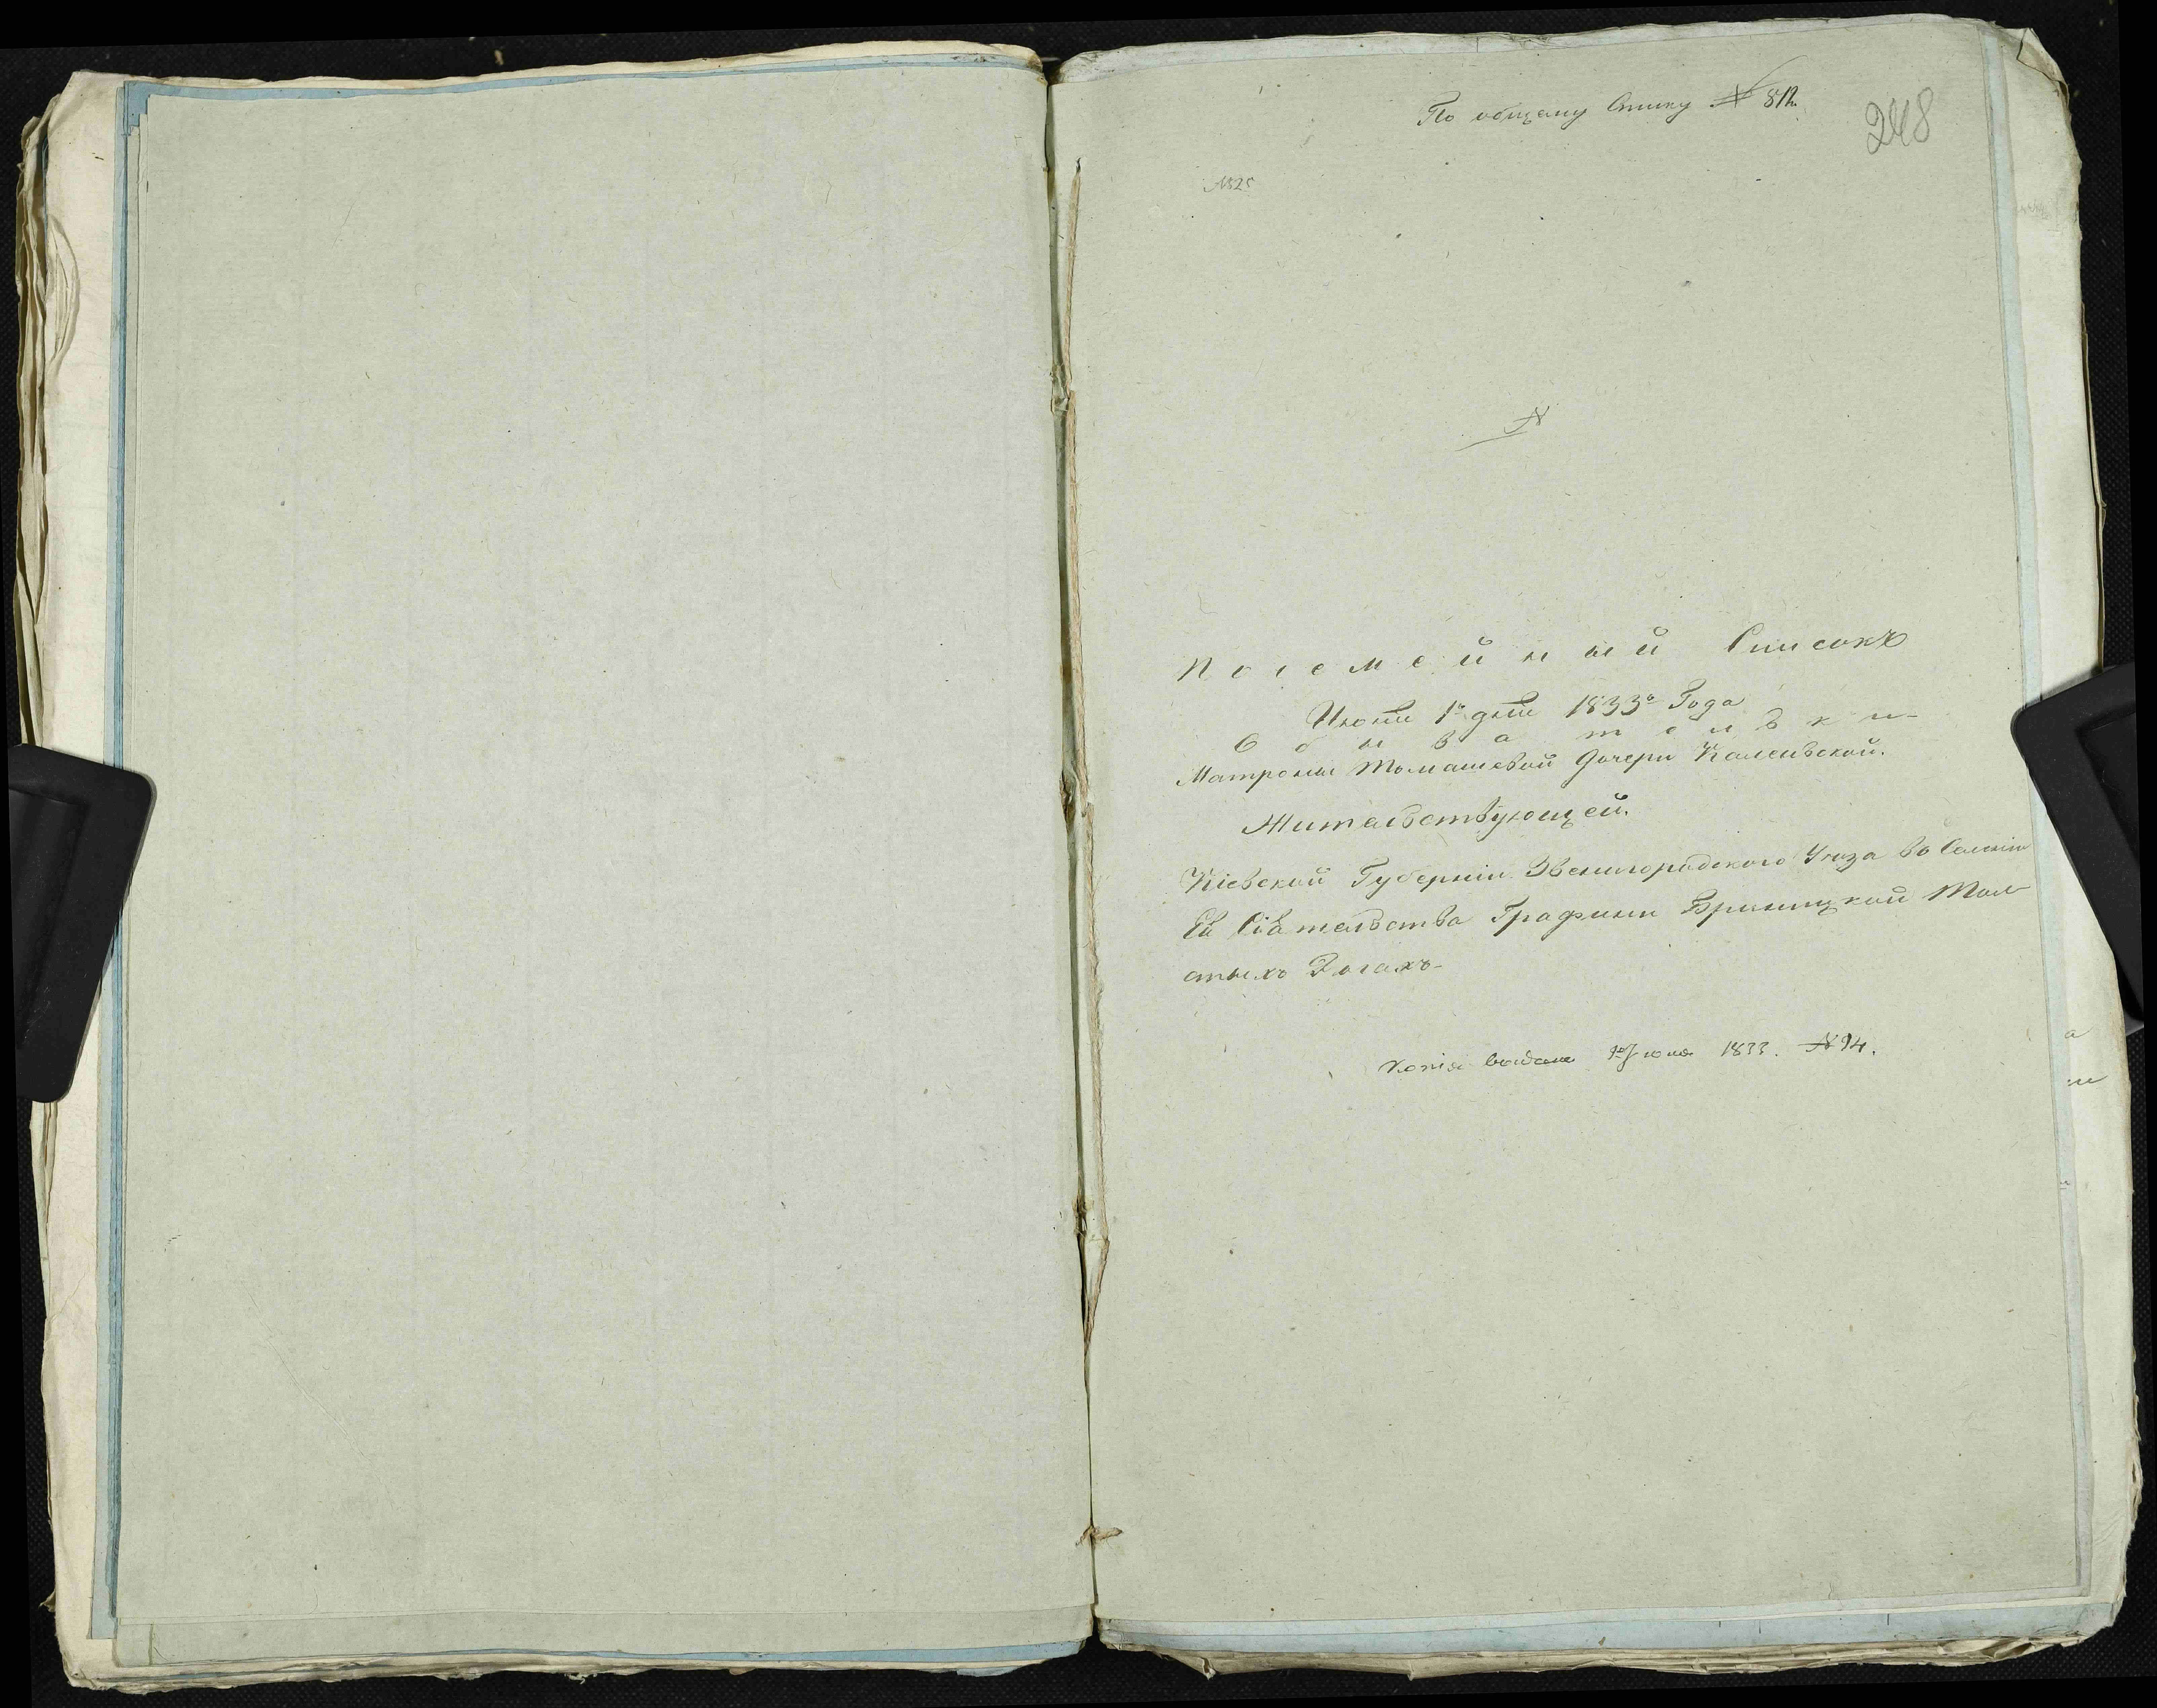 По общему Списку № 812.
248
№25
№
Посемейный Списокъ
Июня 1го дня 1833го Года
Обывательки
Матроны Томашевой Дочери Каленвской.
Жительствующей.
Кіевской Губерніи Звенигородского Уезда въ Селеніи
Ея Сіятельства Графини Браницкой Тол
стыхъ Рогахъ-
Копія выдана Іюня 1833. №94.